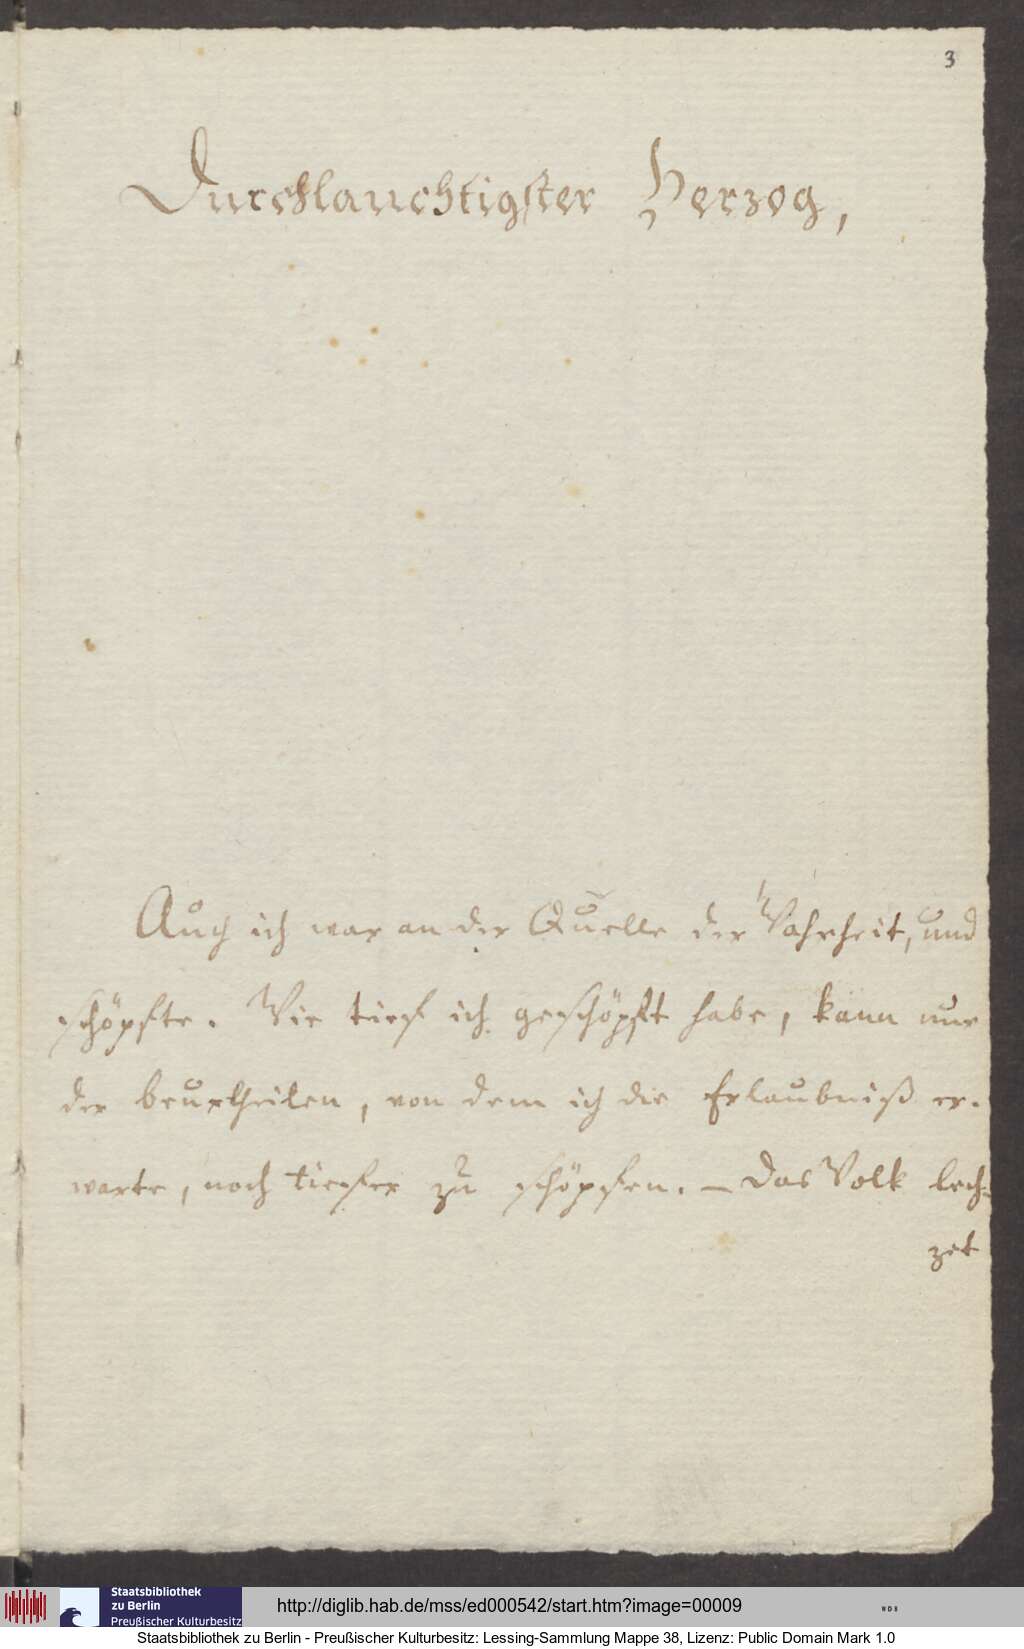 3
Durchlauchtigster Herzog,
Auch ich war an der Quelle der Wahrheit, und
schöpfte. Wie tief ich geschöpft habe, kann nur
der beurtheilen, von dem ich die Erlaubniß er-
warte, noch tiefer zu schöpfen. — Das Volk lech-
zet
Staatsbibliothek
zu Berlin
Preußischer Kulturbesitz
http://diglib.hab.de/mss/ed000542/start.htm?image=00009
WDB
Staatsbibliothek zu Berlin - Preußischer Kulturbesitz: Lessing-Sammlung Mappe 38, Lizenz: Public Domain Mark 1.0